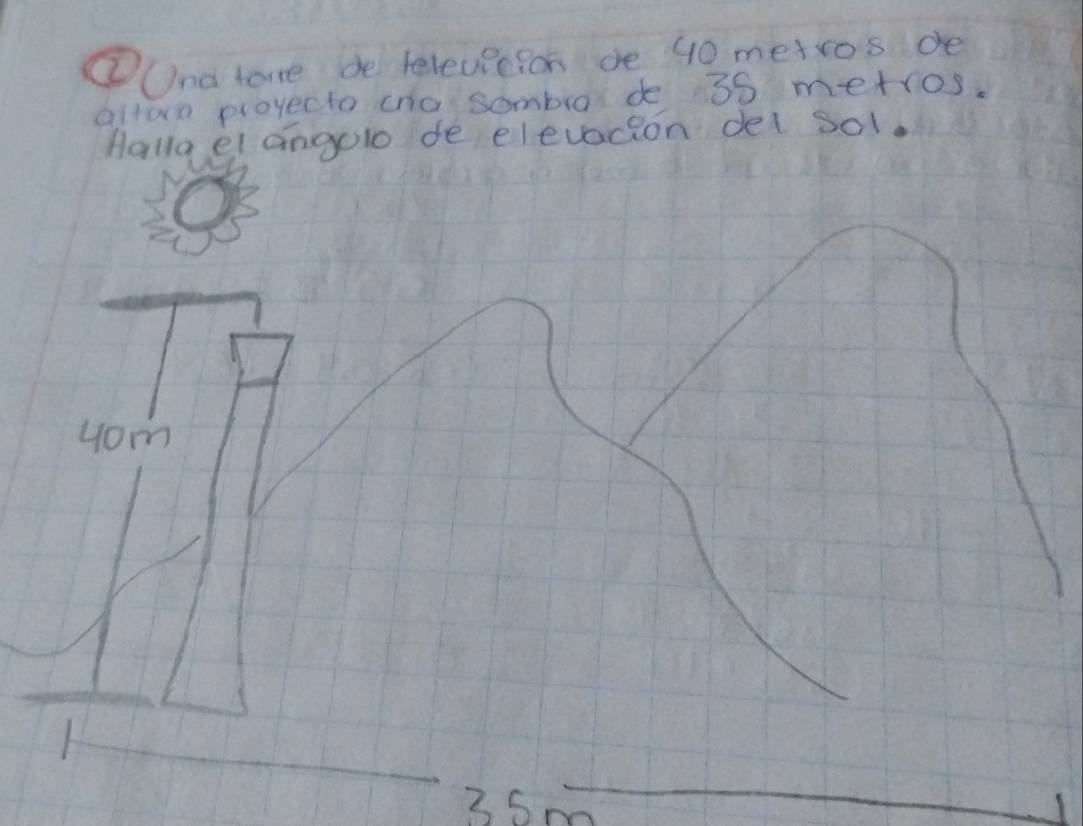 ② Una torre de televición de 40 metros de
altura proyecto una sombra de 35 metros.
Halla el ángulo de elevación del sol.
40m
35m